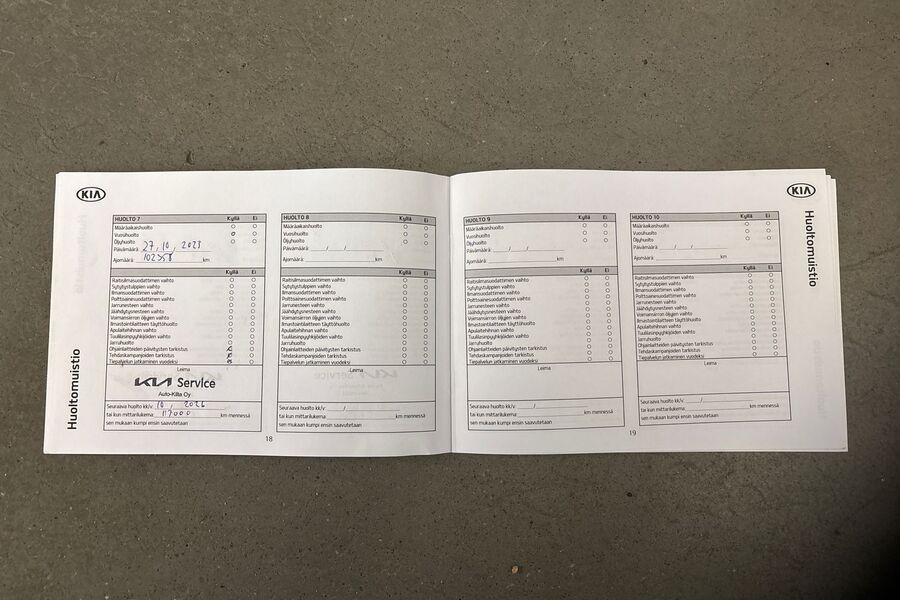 KIA
HUOLTO 7 Kyllä Ei
Määräaikaishuolto
Vuosihuolto
Öljyhuolto
Päivämäärä: 27, 10, 2023
Ajomäärä: 102358 km
Kyllä Ei
Raitisilmasuodattimen vaihto
Sytytystulppien vaihto
Ilmansuodattimen vaihto
Polttoainesuodattimen vaihto
Jarrunesteen vaihto
Jäähdytysnesteen vaihto
Voimansiirron öljyjen vaihto
Ilmastointilaitteen täyttöhuolto
Apulaitehihnan vaihto
Tuulilasinpyyhkijöiden vaihto
Jarruhuolto
Ohjainlaitteiden päivitysten tarkistus
Tehdaskampanjoiden tarkistus
Tiepalvelun jatkaminen vuodeksi
Leima
KIA Service
Auto-Kilta Oy
Seuraava huolto kk/v: 10, 2024
tai kun mittarilukema: 117000 km mennessä
sen mukaan kumpi ensin saavutetaan
Huoltomuistio
HUOLTO 8 Kyllä Ei
Määräaikaishuolto
Vuosihuolto
Öljyhuolto
Päivämäärä: / /
Ajomäärä: km
Kyllä Ei
Raitisilmasuodattimen vaihto
Sytytystulppien vaihto
Ilmansuodattimen vaihto
Polttoainesuodattimen vaihto
Jarrunesteen vaihto
Jäähdytysnesteen vaihto
Voimansiirron öljyjen vaihto
Ilmastointilaitteen täyttöhuolto
Apulaitehihnan vaihto
Tuulilasinpyyhkijöiden vaihto
Jarruhuolto
Ohjainlaitteiden päivitysten tarkistus
Tehdaskampanjoiden tarkistus
Tiepalvelun jatkaminen vuodeksi
Leima
Seuraava huolto kk/v: /
tai kun mittarilukema: km mennessä
sen mukaan kumpi ensin saavutetaan
18
HUOLTO 9 Kyllä Ei
Määräaikaishuolto
Vuosihuolto
Öljyhuolto
Päivämäärä: / /
Ajomäärä: km
Kyllä Ei
Raitisilmasuodattimen vaihto
Sytytystulppien vaihto
Ilmansuodattimen vaihto
Polttoainesuodattimen vaihto
Jarrunesteen vaihto
Jäähdytysnesteen vaihto
Voimansiirron öljyjen vaihto
Ilmastointilaitteen täyttöhuolto
Apulaitehihnan vaihto
Tuulilasinpyyhkijöiden vaihto
Jarruhuolto
Ohjainlaitteiden päivitysten tarkistus
Tehdaskampanjoiden tarkistus
Tiepalvelun jatkaminen vuodeksi
Leima
Seuraava huolto kk/v: /
tai kun mittarilukema: km mennessä
sen mukaan kumpi ensin saavutetaan
KIA
Huoltomuistio
HUOLTO 10 Kyllä Ei
Määräaikaishuolto
Vuosihuolto
Öljyhuolto
Päivämäärä: / /
Ajomäärä: km
Kyllä Ei
Raitisilmasuodattimen vaihto
Sytytystulppien vaihto
Ilmansuodattimen vaihto
Polttoainesuodattimen vaihto
Jarrunesteen vaihto
Jäähdytysnesteen vaihto
Voimansiirron öljyjen vaihto
Ilmastointilaitteen täyttöhuolto
Apulaitehihnan vaihto
Tuulilasinpyyhkijöiden vaihto
Jarruhuolto
Ohjainlaitteiden päivitysten tarkistus
Tehdaskampanjoiden tarkistus
Tiepalvelun jatkaminen vuodeksi
Leima
Seuraava huolto kk/v: /
tai kun mittarilukema: km mennessä
sen mukaan kumpi ensin saavutetaan
19